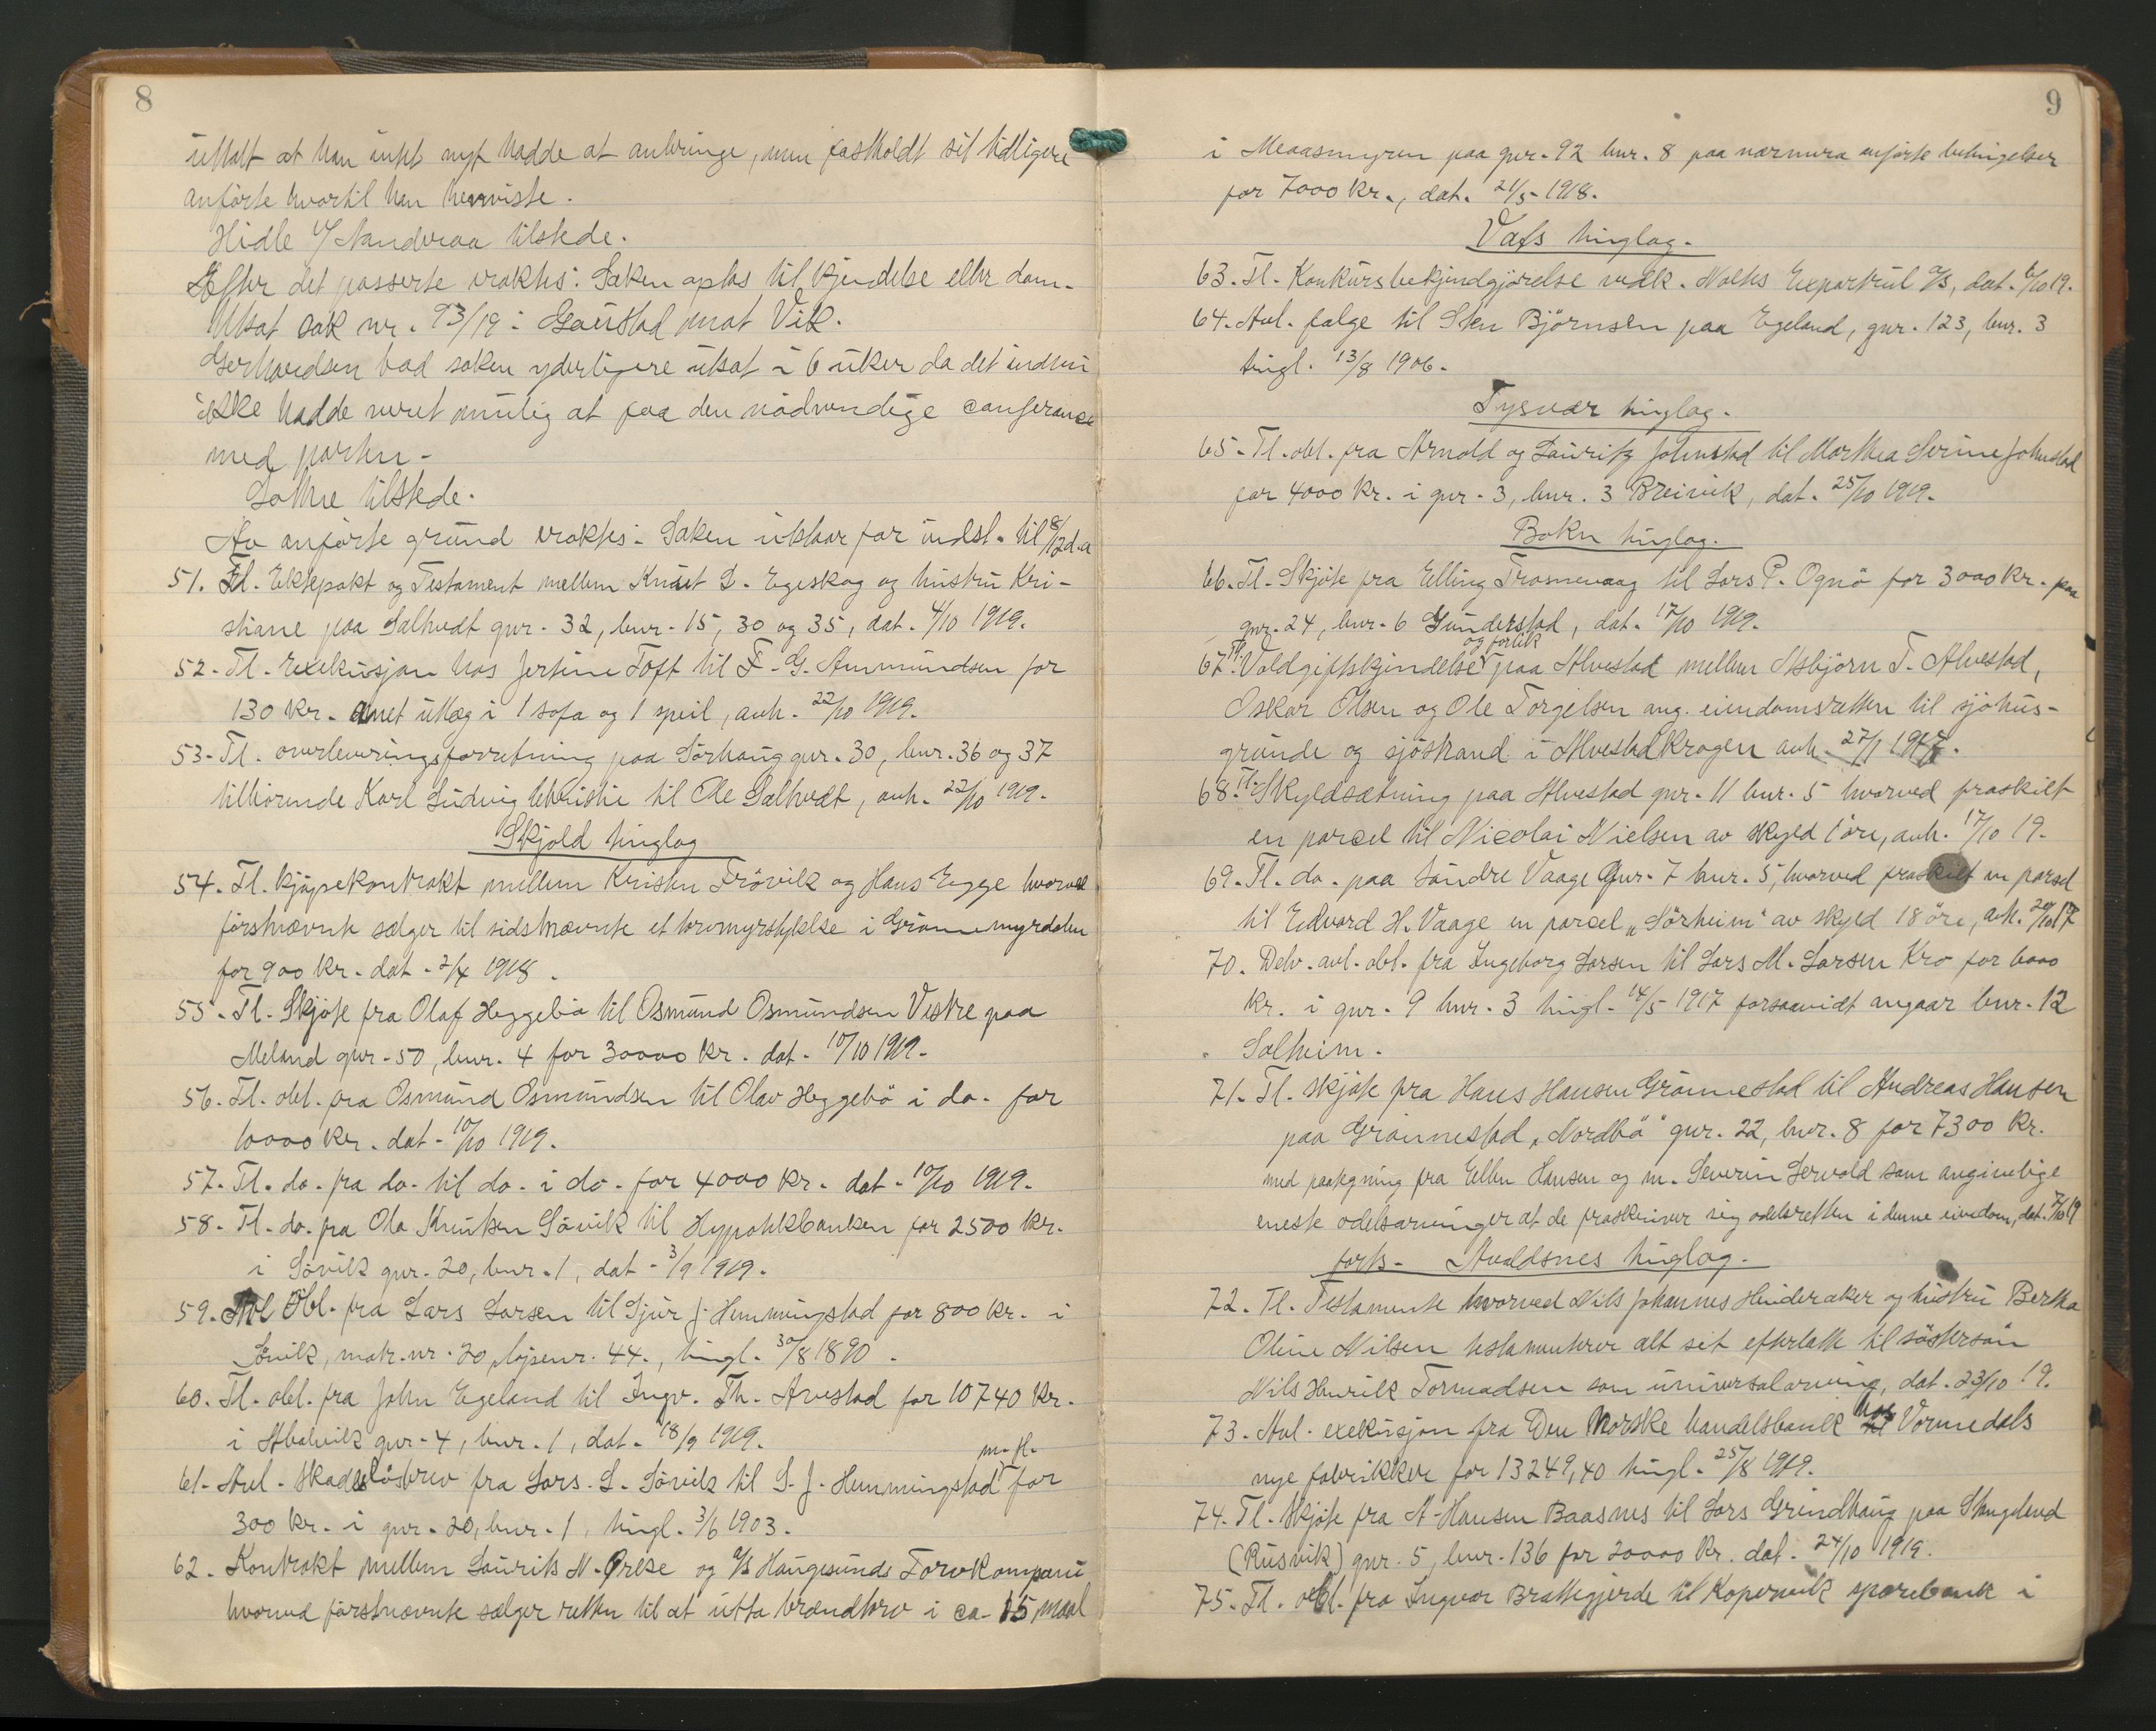 8
uttalt at han intet nyt hadde at anbringe, men fastholdt sit tidligere
anförte hvortil han henviste.
Hidle f/ Nandvraa tilstede.
Efter det passerte vraktes: Saken optas til kjendelse eller dom.
Utsat sak nr. 93/19: Gaustad mot Vik.
Gerhardsen bad saken yderligere utsat i 6 uker da det endnu
ikke hadde været mulig at faa den nödvendige conferance
med parten.
Lothe tilstede.
Av anförte grund vraktes: Saken utstaar for indst. til 8/12 d.a
51. Tl. Ektepakt og Testament mellem Knut L. Egeskog og hustru Kri-
stiane paa Salhvedt gnr. 32, bnr. 15, 30 og 35, dat. 4/10 1919.
52. Tl. exekusjon hos Jertine Toft til F. G. Ammundsen for
130 kr. med utlæg i 1 sofa og 1 speil, avh. 22/10 1919.
53. Tl. overleveringsforretning paa Sörhaug gnr. 30, bnr. 36 og 37
tilhörende Karl Ludvig Christie til Ole Salhvedt, avh. 22/10 1919.
Skjold tinglag
54. Tl. kjöpekontrakt mellem Kristen Frövik og Hans Egge hvorved
förstnævnte sælger til sidstnævnte et torvmyrstykke i Grönnemyrdalen
for 900 kr. dat. 2/4 1918.
55. Tl. Skjöte fra Olaf Heggebö til Osmund Osmundsen Vestre paa
Meland gnr. 50, bnr. 4 for 30000 kr. dat. 10/10 1919.
56. Tl. obl. fra Osmund Osmundsen til Olav Heggebö i do. for
10000 kr. dat. 10/10 1919.
57. Tl. do. fra do. til do. i do. for 4000 kr. dat. 10/10 1919.
58. Tl. do. fra Ola Knutsen Sövik til Hypotekbanken for 2500 kr.
i Sövik gnr. 20, bnr. 1, dat. 3/9 1919.
59. Avl Obl. fra Lars Larsen til Sjur J. Hemmingstad for 800 kr. i
Sövik, matr. nr. 20, löpenr. 44., tingl. 30/8 1890.
60. Tl. obl. fra John Egeland til Ingv. Th. Arvestad for 10740 kr.
i gnr. 4, bnr. 1, dat. 18/9 1919.
m. fl.
61. Avl. Skadeslösbrev fra Lars L. Sövik til S. J. Hemmingstad for
300 kr. i gnr. 20, bnr. 1, tingl. 3/6 1903.
62. Kontrakt mellem Laurits N. Ørke og A/S Haugesunds Torvkompani
hvorved förstnævnte sælger retten til at utta brændtorv i ca. 15 maal
9
i Meaasmyren paa gnr. 92 bnr. 8 paa nærmere anförte betingelser
for 7000 kr., dat. 21/5 1918.
Vats tinglag.
63. Tl. Konkursbekjendgjörelse vedk. Exportsild A/S, dat. 6/10 19.
64. Avl. fölge til Sten Björnsen paa Egeland, gnr. 123, bnr. 3
tingl. 13/8 1906.
Tysvær tinglag.
65. Tl. obl. fra Arnold og Lauritz Johnstad til Marthea Serine Johnstad
for 4000 kr. i gnr. 3, bnr. 3 Breivik, dat. 25/10 1919.
Bokn tinglag.
66. Tl. Skjöte fra Elling Trosnevaag til Lars P. Ognö for 3000 kr. paa
gnr. 24, bnr. 6 Gunderstad, dat. 17/10 1919.
og forlik
67. Tl. Voldgiftskjendelse paa Alvestad mellem Asbjörn T. Alvestad,
Oskar Olsen og Ole Torgelsen ang. eiendomsretten til sjöhus-
grunde og sjöstrand i Alvestadkrogen avh. 27/1 1917.
68. Tl. Skyldsætning paa Alvestad gnr. 11 bnr. 5 hvorved fraskilt
en parcel til Nicolai Nielsen av skyld 1 öre, avh. 17/10 19.
69. Tl. do. paa Söndre Vaage gnr. 7 bnr. 5, hvorved fraskilt en parsel
til Edvard H. Vaage en parcel „Sörheim" av skyld 18 öre, avh. 20/10 17
70. Delv. avl. obl. fra Ingeborg Larsen til Lars M. Larsen Kro for 6000
kr. i gnr. 9 bnr. 3 tingl. 14/5 1917 forsaavidt angaar bnr. 12
Solheim.
71. Tl. skjöte fra Hans Hansen Grönnestad til Andreas Hansen
paa Grönnestad „Nordbö" gnr. 22, bnr. 8 for 7300 kr.
med paategning fra Ellen Hansen og m. Severin Servold som angivelige
eneste odelsarvinger at de fraskriver sig odelsretten i denne eiendom, dat. 7/10 19
forts. Avaldsnes tinglag.
72. Tl. Testamente hvorved Nils Johannes Hinderaker og hustru Bertha
Oline Nilsen testamenterer alt sit efterlatte til söstersön
Nils Henrik Tormodsen som universalarving, dat. 23/10 19.
73. Avl. exekusjon fra Den Norske handelsbank hos Vormedals
nye fabrikker for 13249,40 tingl. 25/8 1919.
74. Tl. Skjöte fra A. Hansen Baasnes til Lars Grindhaug paa Stangeland
(Rusvik) gnr. 5, bnr. 136 for 20000 kr. dat. 24/10 1919.
75. Tl. obl. fra Ingvar Brattegjerde til Kopervik sparebank i